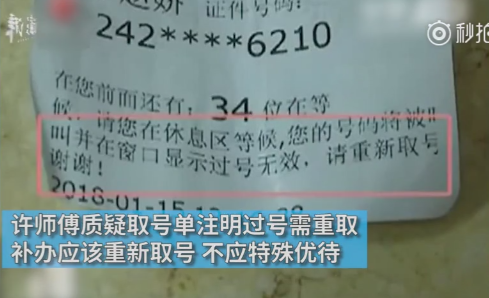 证件号码:
秒拍
242****6210
在您前面还有: 34 位在等
候. 请您在休息区等候,您的号码将被
叫并在窗口显示过号无效. 请重新取号
谢谢!
2018-01-15
许师傅质疑取号单注明过号需重取
补办应该重新取号 不应特殊优待